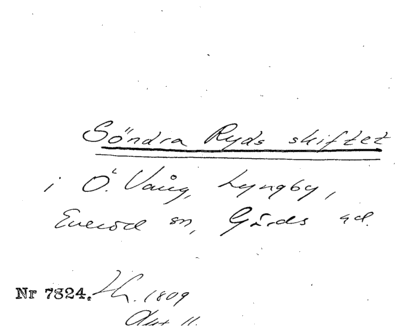 Södra Ryds skiftet
i Ö. Vång, Lyngby,
Everöd sn, Gärds hd.
Nr 7824. 1809